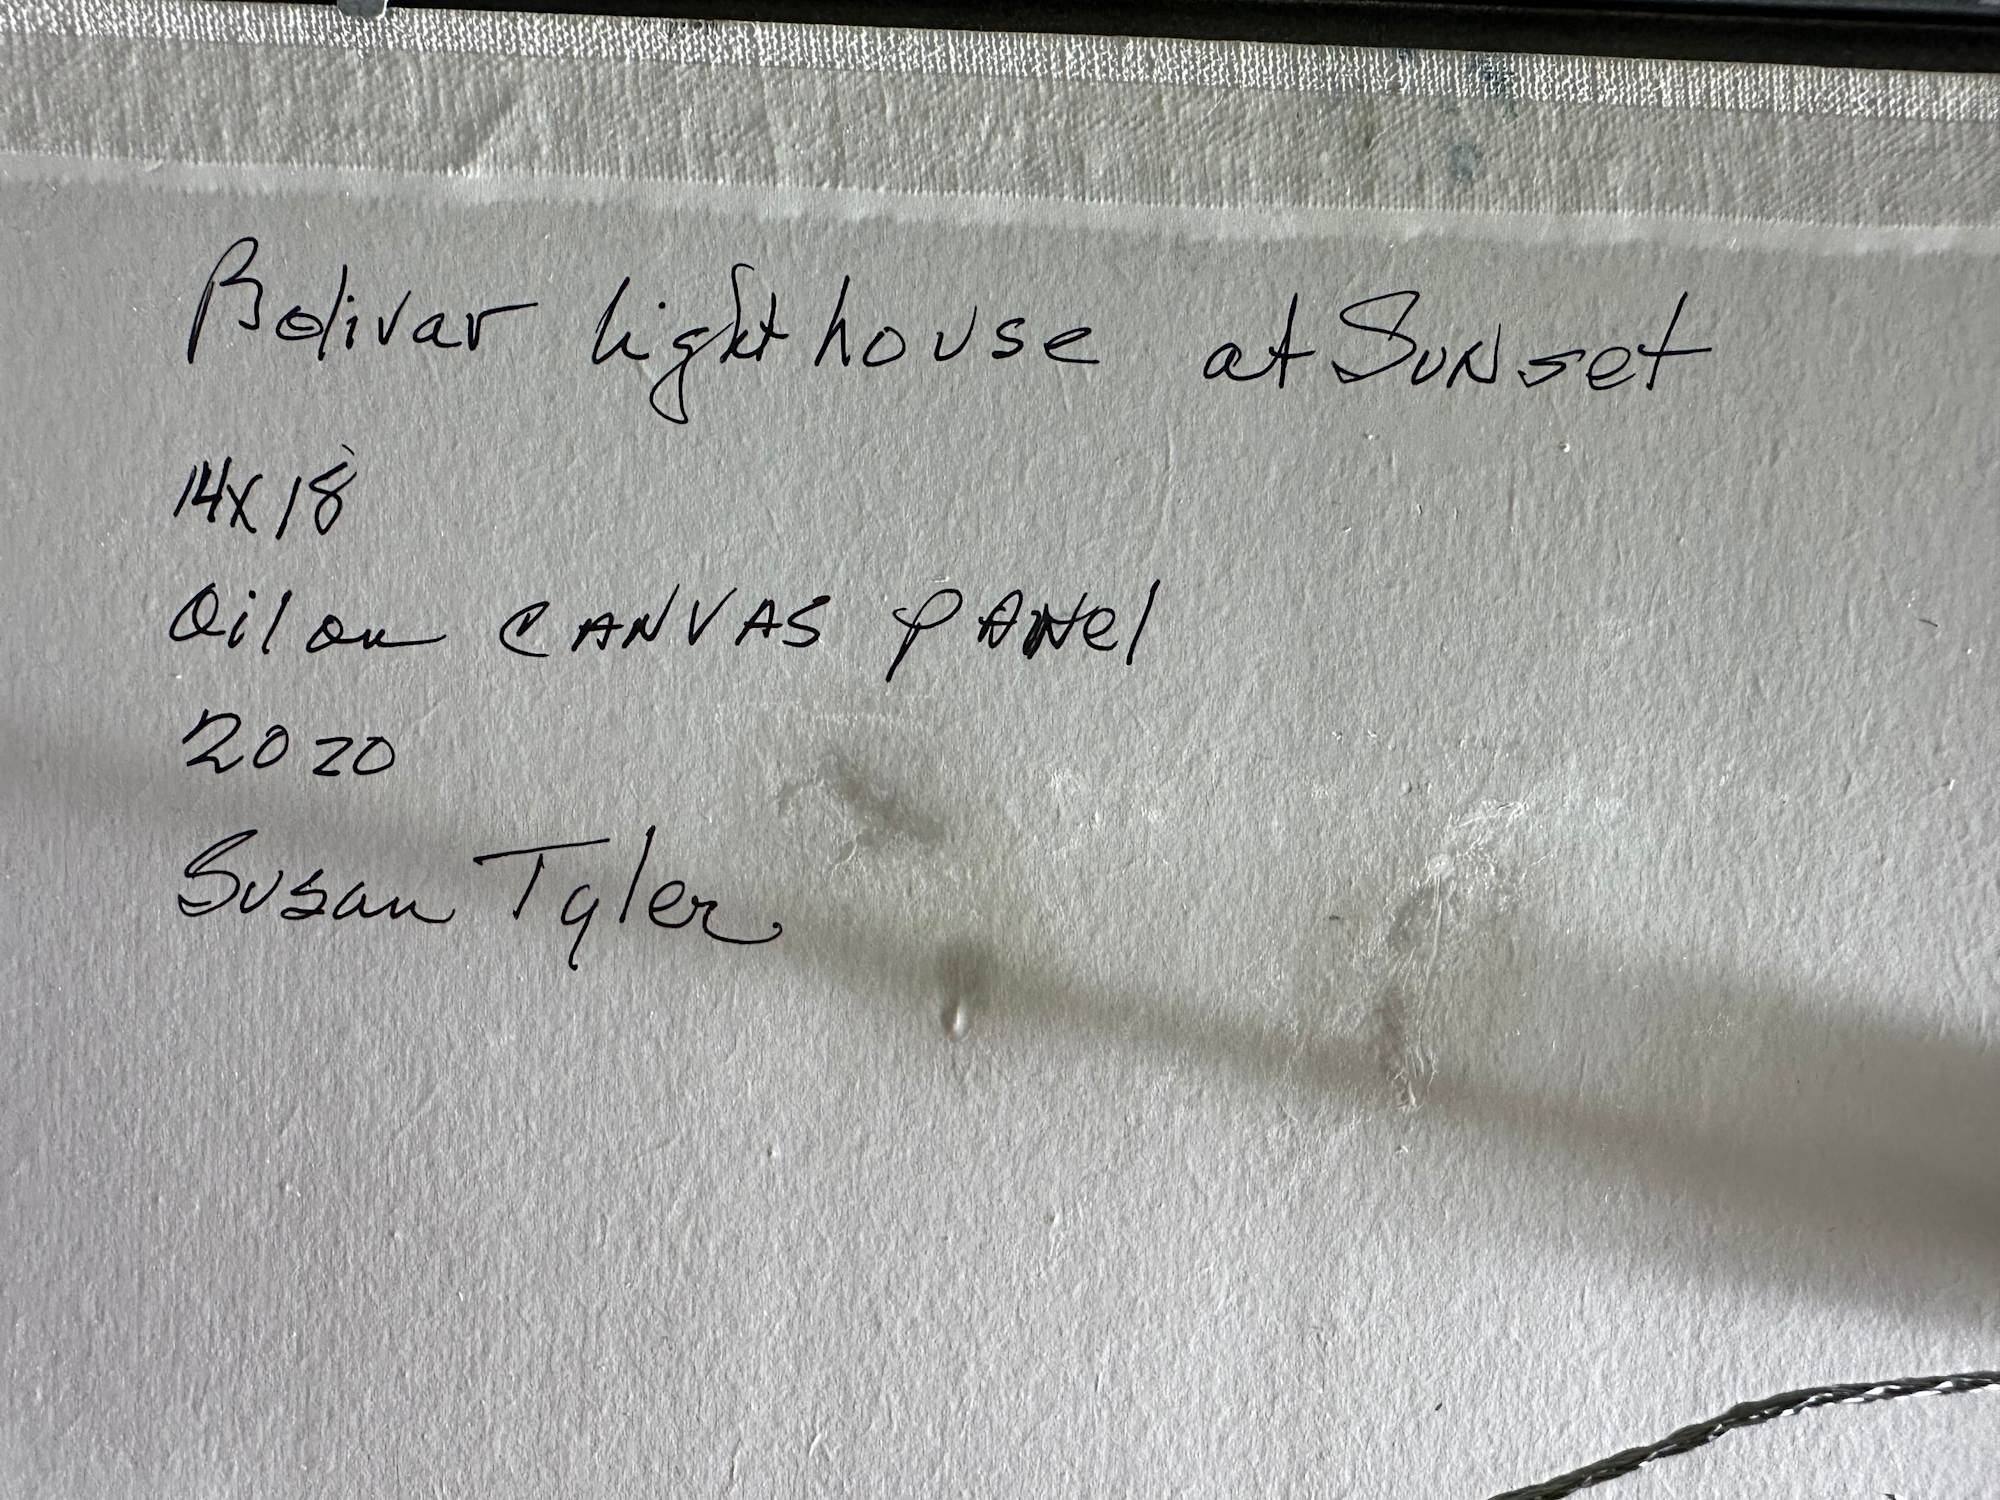 Bolivar lighthouse at Sunset
14x18
Oil on CANVAS PANel
2020
Susan Tyler